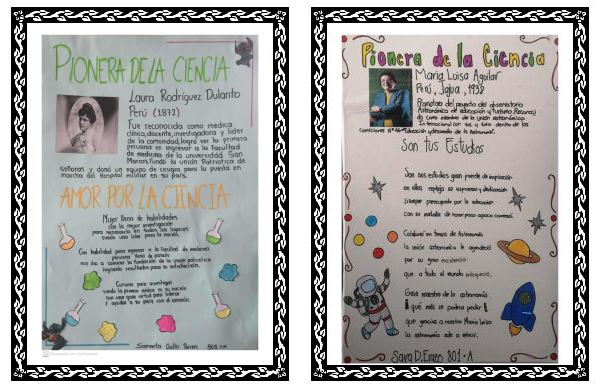 PIONERA DE LA CIENCIA
Laura Rodríguez Dulanto
Perú (1872)
Fue reconocida como medica
clínica, docente, investigadora y lider
de la comunidad, logró ser la primera
peruana en ingresar a la Facultad
de medicina de la universidad San
Marcos, fundó la unión Patriotica de
señoras y donó un equipo de cirugia para la puesta en
marcha del Hospital militar en su país.
AMOR POR LA CIENCIA
Mujer llena de habilidades
con la mejor investigación
para en todos los lugares
siendo una lider para la nación.
Con habilidad para ingresar a la facultad de medicina
peruana llena de pasión
nos dio a conocer la fundación de la unión patriotica
logrando resultados para su
Curiosa para investigar
siendo la primera médica en su nación
con una gran virtud para liderar
y ayudar a su país con el corazón.
Samanta Gallo 801
Pionera de la Ciencia
María Luisa Aguilar
Perú, Jauja, 1938
Promotora del proyecto del observatorio
Astronómico de educación y turismo. Reconoci-
da como miembro de la unión astronómica
Internacional con voz y voto dentro de las
Comisiones Nº 46 "Educación y desarrollo de la Astronomía".
Son tus Estudios
Son sus estudios gran fuente de inspiración
en ellos refleja su esfuerzo y dedicación
Siempre preocupada por la educación
Con su
Colaboró en temas de Astronomía
la unión astronómica le agradecía
por su gran
que a todo el mundo
Gran maestra de la astronomía
¡qué más se podría pedir!
que gracias a nuestra María Luisa
la astronomía
Sara D. Erazo 801-A